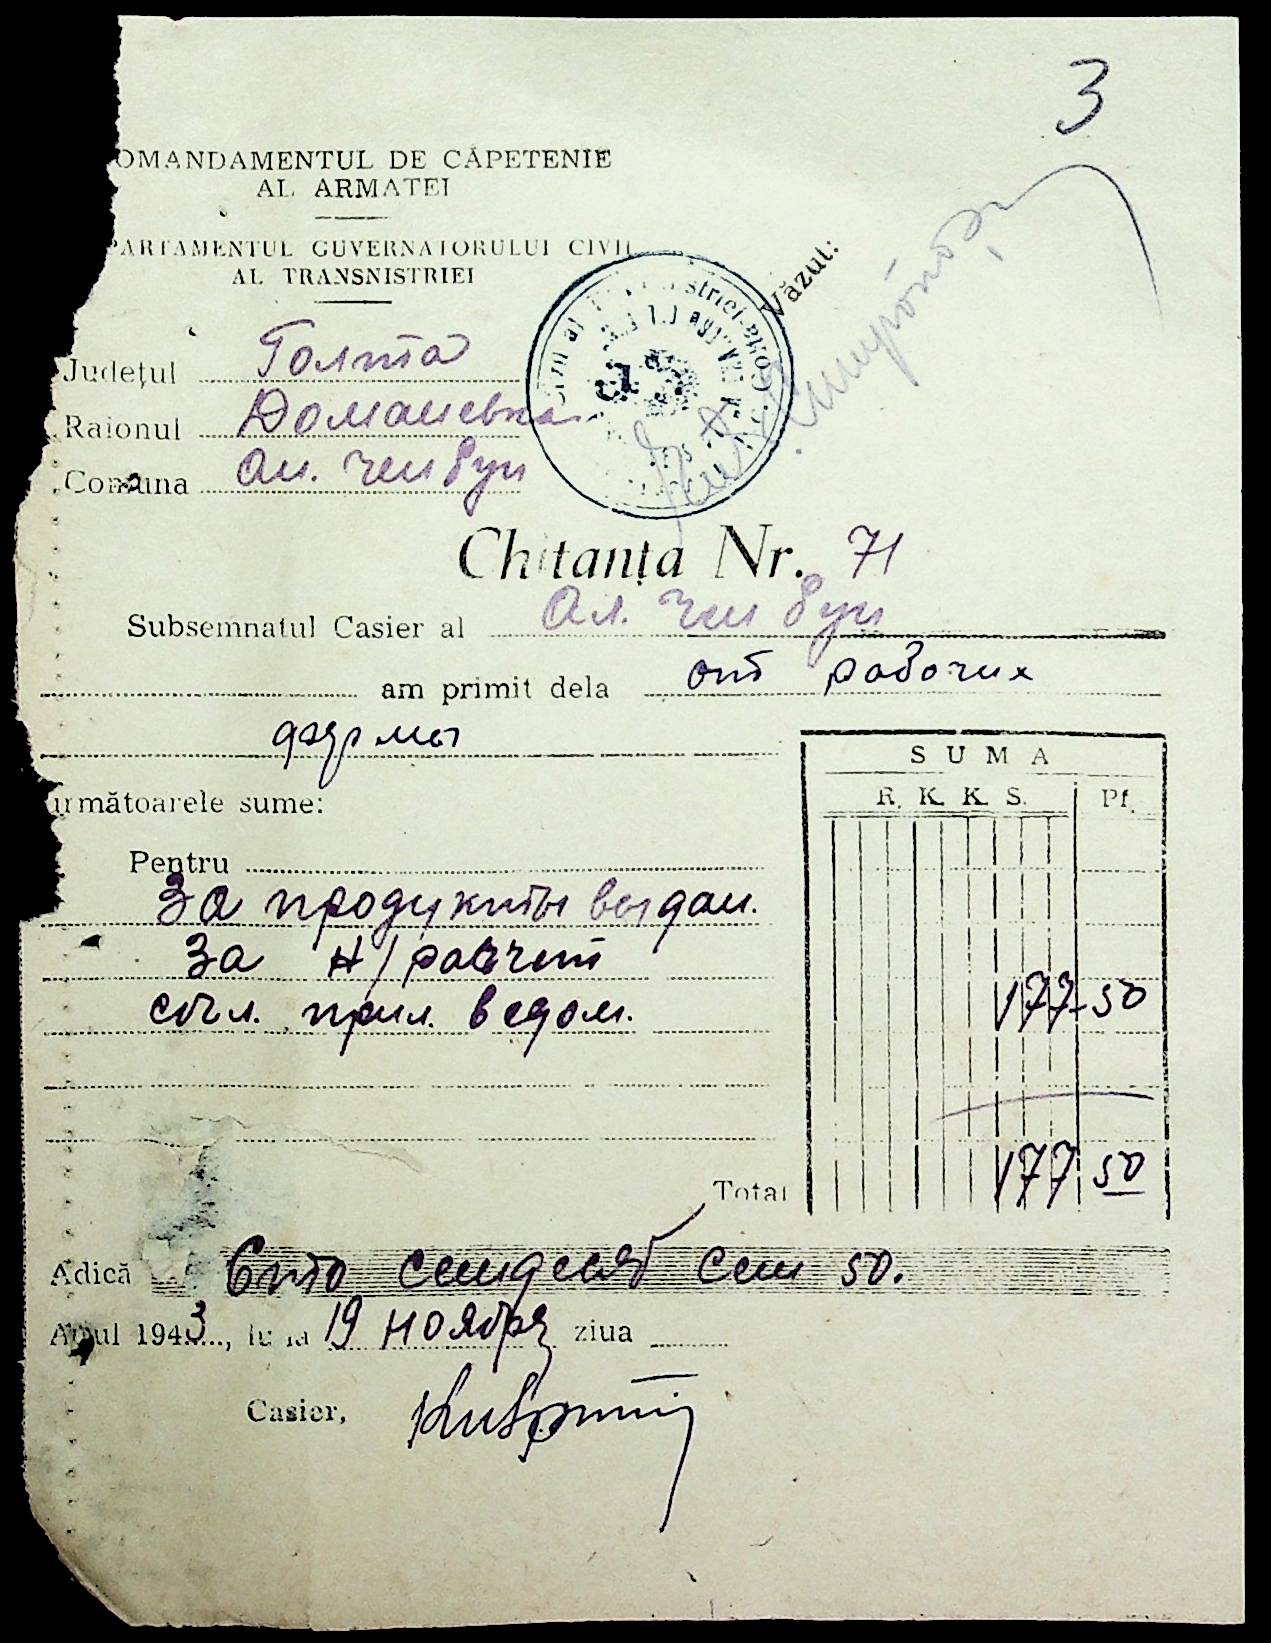 3
OMANDAMENTUL DE CĂPETENIE
AL ARMATEI
PARTAMENTUL GUVERNATORULUI CIVIL
AL TRANSNISTRIEI
Văzut:
Județul Голта
Raionul Доманевка
Comuna Ал. Чембун
Chitanța Nr. 71
Subsemnatul Casier al Ал. Чембун
am primit dela от рабочих
фермы
următoarele sume:
SUMA
R. K. K. S. Pf.
Pentru
За продукты выдан.
за н/расчет
согл. прил. ведом. 177-50
Total 177 50
Adică Сто семдесят сем 50.
Anul 1943, luna 19 ноября ziua
Casier,